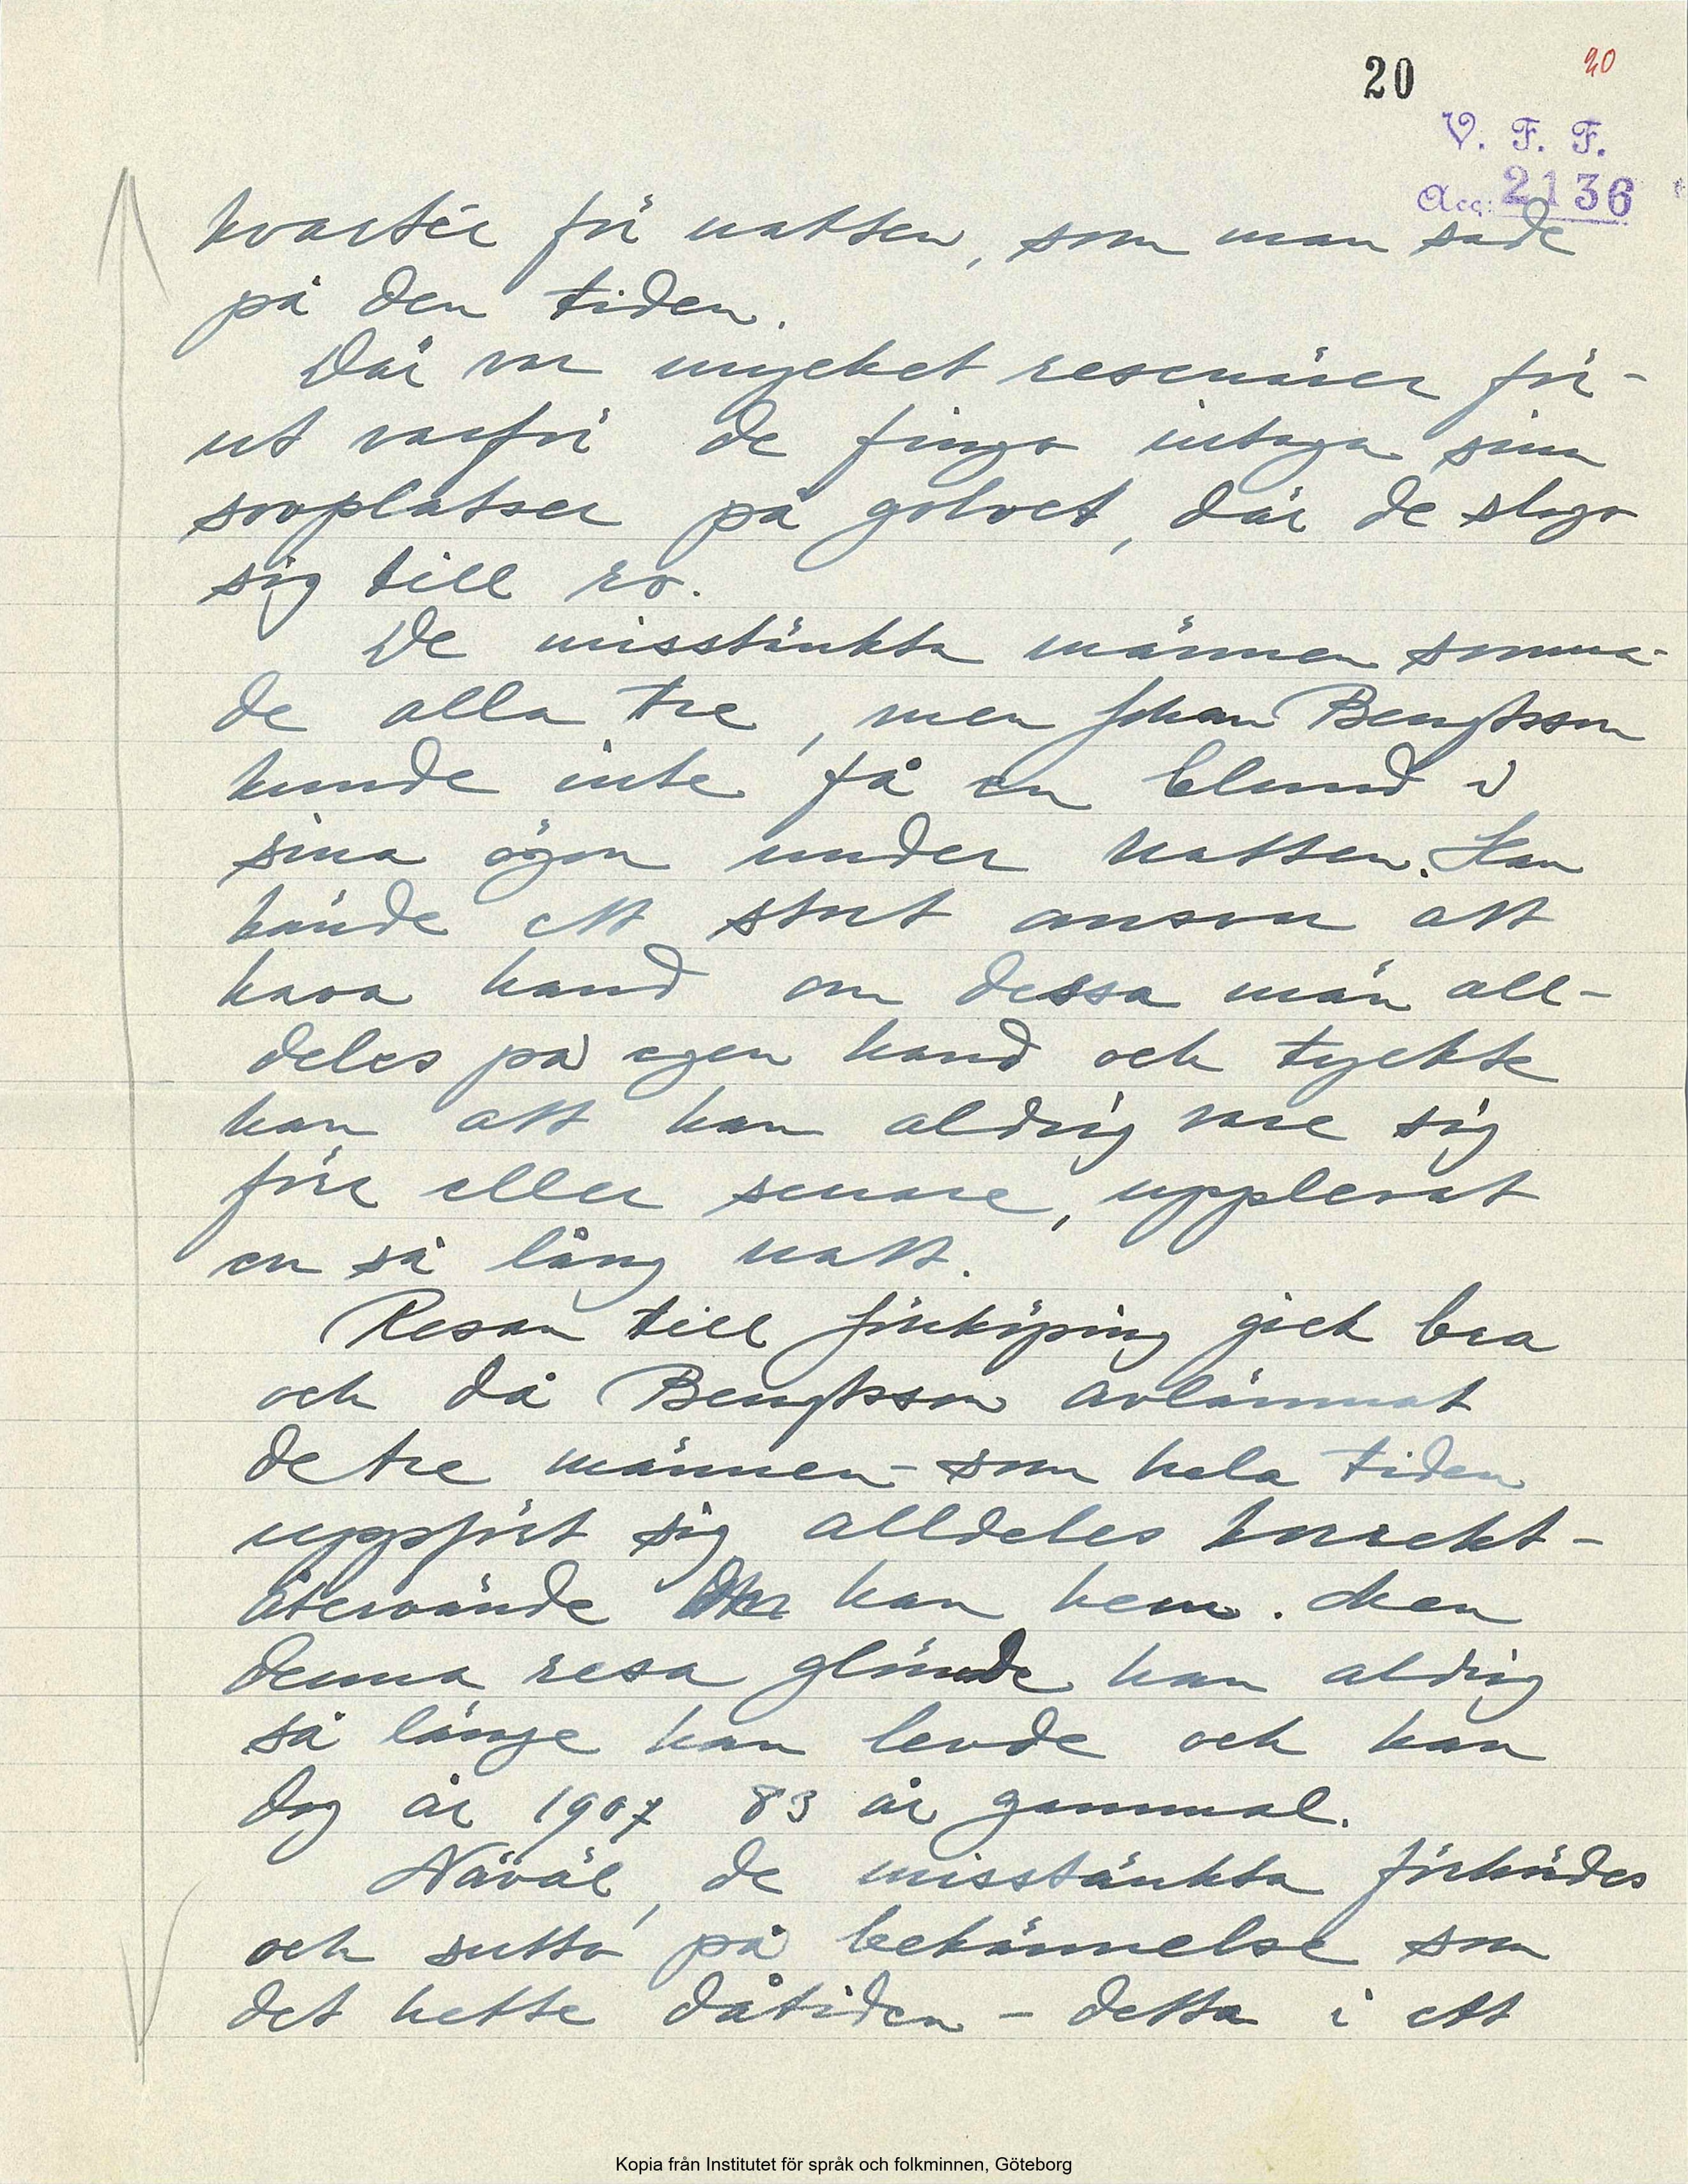 20
20
V. F. F.
Acc: 2136
kvartér för natten, som man sade
på den tiden.
Där var mycket resenärer för-
ut varför de fingo intaga sina
sovplatser på golvet, där de slogo
sig till ro.
De misstänkta männen somna-
de alla tre, men Johan Bengtsson
kunde inte få en blund i
sina ögon under natten. Han
kände ett stort ansvar att
hava hand om dessa män all-
deles på egen hand och tyckte
han att han aldrig vare sig
förr eller senare, upplevat
en så lång natt.
Resan till Jönköping gick bra
och då Bengtsson avlämnat
de tre männen - som hela tiden
uppfört sig alldeles korrekt -
återvände han hem. Men
denna resa glömde han aldrig
så länge han levde och han
dog år 1907 83 år gammal.
Nåväl, de misstänkta förhördes
och sutto på bekännelse som
det hette dåtiden - detta i ett
Kopia från Institutet för språk och folkminnen, Göteborg